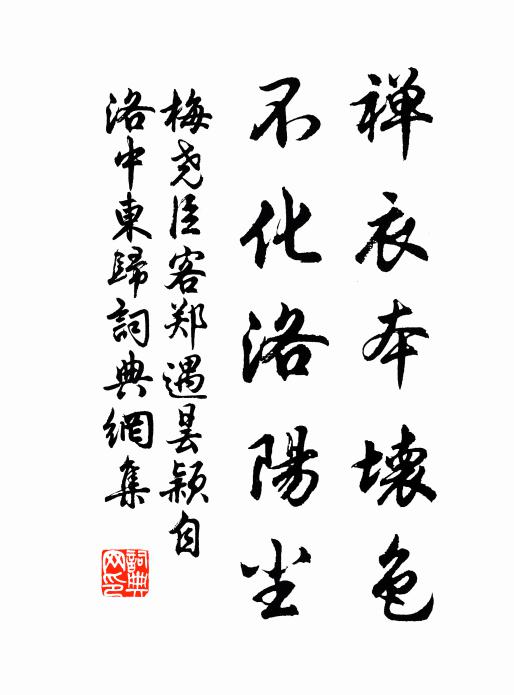 禅衣本壊色
不化洛陽尘
梅尧臣客郑遇昙颖自
洛中東歸詞典網集
詞典
网印